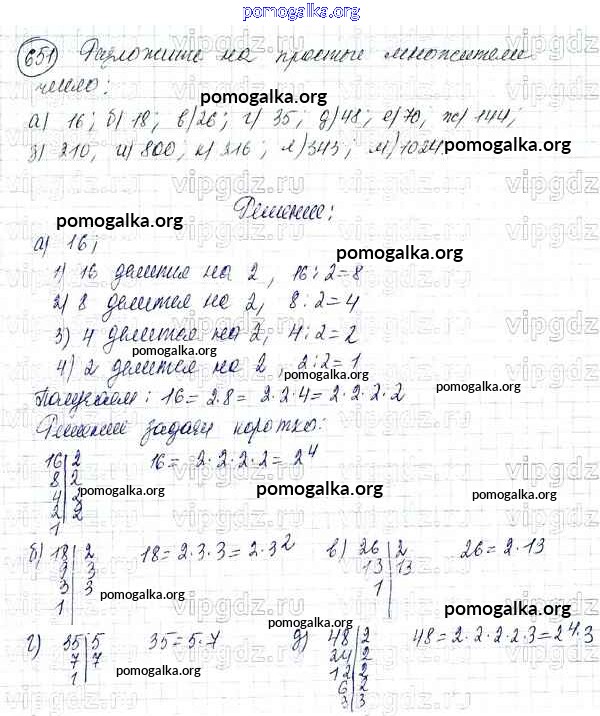 pomogalka.org
651 Разложите на простые множители
число:
pomogalka.org
а) 16; б) 18; в) 26; г) 35; д) 48; е) 70, ж) 144;
з) 210, и) 800; к) 316; л) 343; м) 1024 pomogalka.org
vipgdz.ru vipgdz.ru vipgdz.ru
pomogalka.org Решение:
а) 16; pomogalka.org
1) 16 делится на 2, 16:2=8
2) 8 делится на 2, 8:2=4
3) 4 делится на 2, 4:2=2
pomogalka.org
4) 2 делится на 2, 2:2=1
pomogalka.org
Получаем: 16=2·8=2·2·4=2·2·2·2
pomogalka.org
Решение задачи коротко:
16|2 16=2·2·2·2=2⁴
8|2
4|2 pomogalka.org pomogalka.org pomogalka.org
2|2
1
б) 18|2 18=2·3·3=2·3² в) 26|2 26=2·13
9|3 13|13
3|3 1
1
pomogalka.org pomogalka.org
г) 35|5 35=5·7 д) 48|2 48=2·2·2·2·3=2⁴·3
7|7 24|2
1 12|2
pomogalka.org
6|2
3|3
pomogalka.org